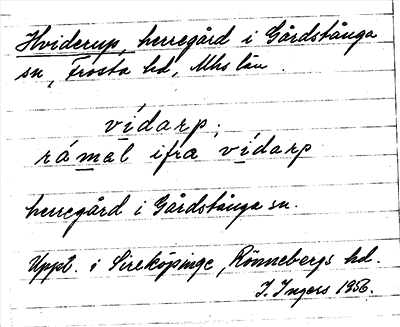 Hviderup, herregård i Gårdstånga
sn, Frosta hd, Mhs län.
vídarp;
rámal ifra vídarp
herregård i Gårdstånga sn.
Uppt. i Sireköpinge, Rönnebergs hd.
I. Ingers